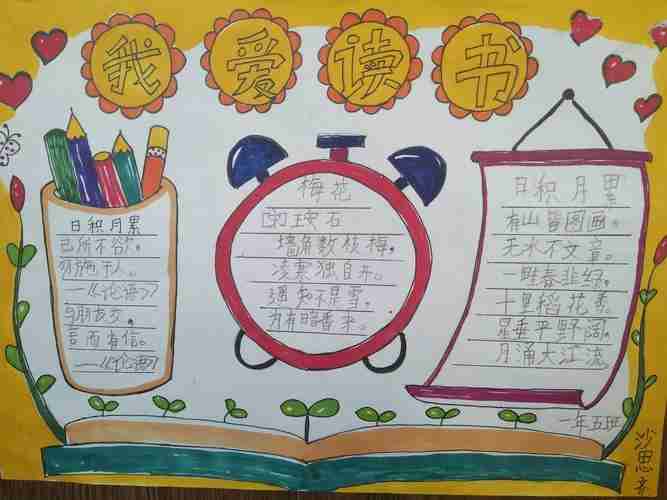 我爱读书
日积月累
己所不欲。
勿施于人。
——《论语》
与朋友交，
言而有信。
——《论语》
梅花
石
墙角数枝梅。
凌寒独自开。
遥知不是雪。
为有暗香来。
日积月累
有山皆图画。
无水不文章。
一畦春韭绿。
十里稻花香。
星垂平野阔。
月涌大江流
一年五班
沙思